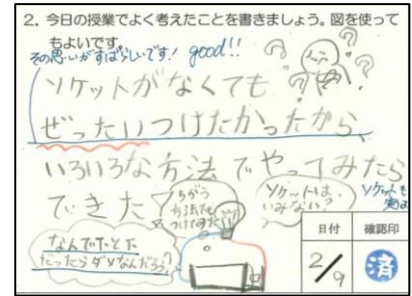 2. 今日の授業でよく考えたことを書きましょう。図を使って
もよいです。
その思いがすばらしいです! good!!
ソケットがなくても
ぜったいつけたかったから、
いろいろな方法でやってみたら
できた
ちがう
方法でも
ついてすご
ソケットは、
いみない?
ソケットも
実は
なんでたとた
だったらダメなんだろう?
日付
確認印
2/9
済